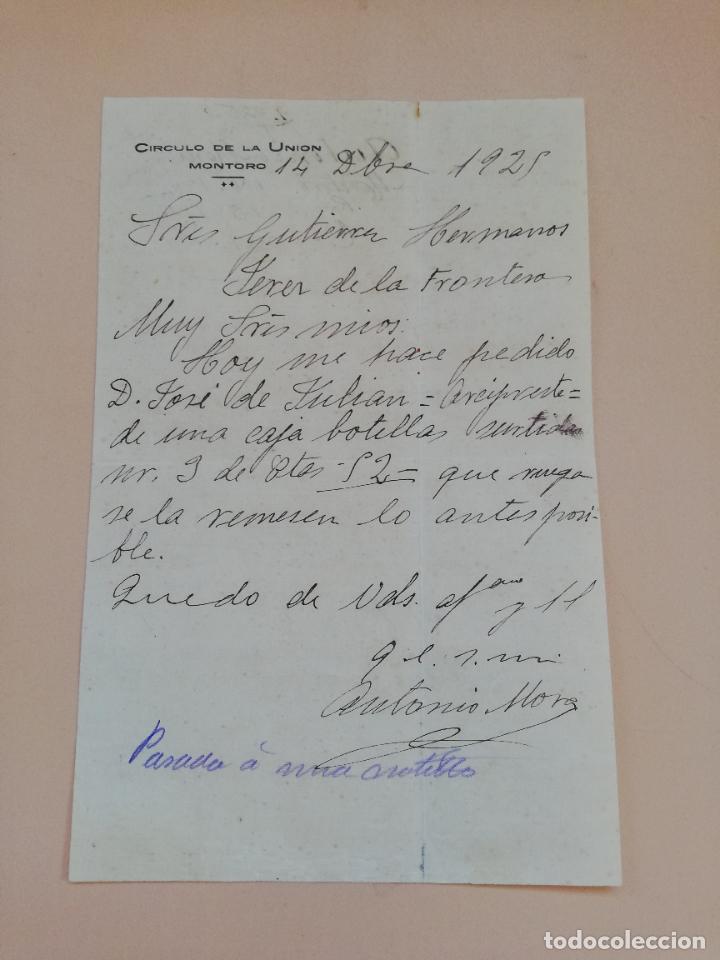 CIRCULO DE LA UNION
MONTORO 14 Dbre 1925
Sres Gutierrez Hermanos
Jerez de la Frontera
Muy Sres mios:
Hoy me hace pedido
D. José de Julian = Arcipreste =
de una caja botellas surtidas
nr. 3 de Ptas 52 = que ruega
se la remesen lo antes posi-
ble.
Quedo de Vds. afmo y ss
q. e. s. m.
Antonio Mora
Pasada à una
todocoleccion
todocoleccion.net